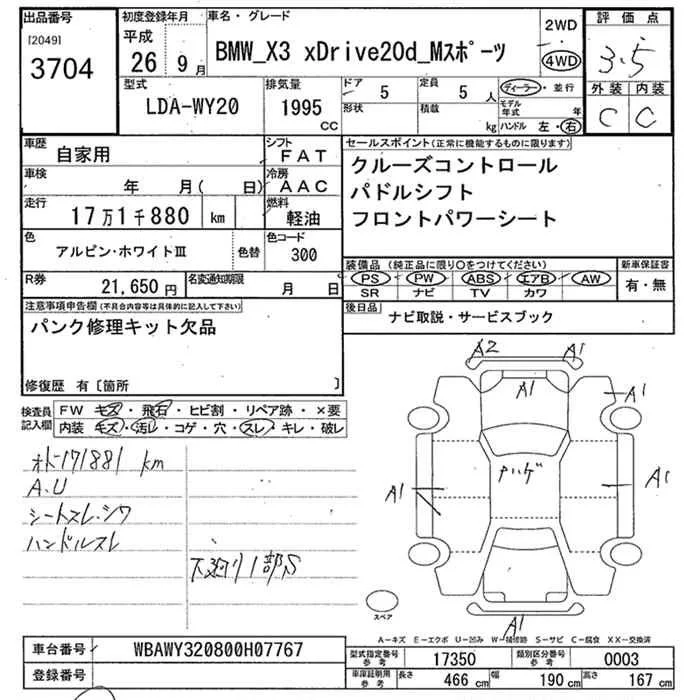 出品番号 [2049] 3704
初度登録年月 平成 26年 9月
車名・グレード BMW_X3 xDrive20d_Mスポーツ
2WD 4WD
評価点 3.5
外装 内装
C C
型式 LDA-WY20
排気量 1995 CC
ドア 5 形状
定員 5 人 積載 kg
ディーラー・並行
モデル年式 年
ハンドル 左・右
車歴 自家用
シフト FAT
車検 年 月( 日)
冷房 AAC
走行 17万1千880 km
燃料 軽油
色 アルピン・ホワイトⅢ 色替
色コード 300
R券 21,650円
名変通知期限 月 日
セールスポイント(正常に機能するものに限ります)
クルーズコントロール
パドルシフト
フロントパワーシート
装備品 (純正品に限り○をつけてください)
PS PW ABS エアB AW
SR ナビ TV カワ
新車保証書
有・無
後日品 ナビ取説・サービスブック
注意事項申告欄(不具合内容等は具体的に記入して下さい)
パンク修理キット欠品
修復歴 有〔箇所 〕
検査員記入欄
FW キズ・飛石・ヒビ割・リペア跡・×要
内装 キズ・汚レ・コゲ・穴・スレ・キレ・破レ
オド171881 km
A.U
シートスレ.シワ
ハンドルスレ
下廻り1部S
A2 A1
A1
A1
ナハゲ
A1
A1
A1
スペア
A-キズ E-エクボ U-凹み W-補修跡 S-サビ C-腐食 XX-交換済
車台番号 WBAWY320800H07767
登録番号
型式指定番号 参考 17350
類別区分番号 参考 0003
車庫証明用 参考 長さ 466 cm 幅 190 cm 高さ 167 cm